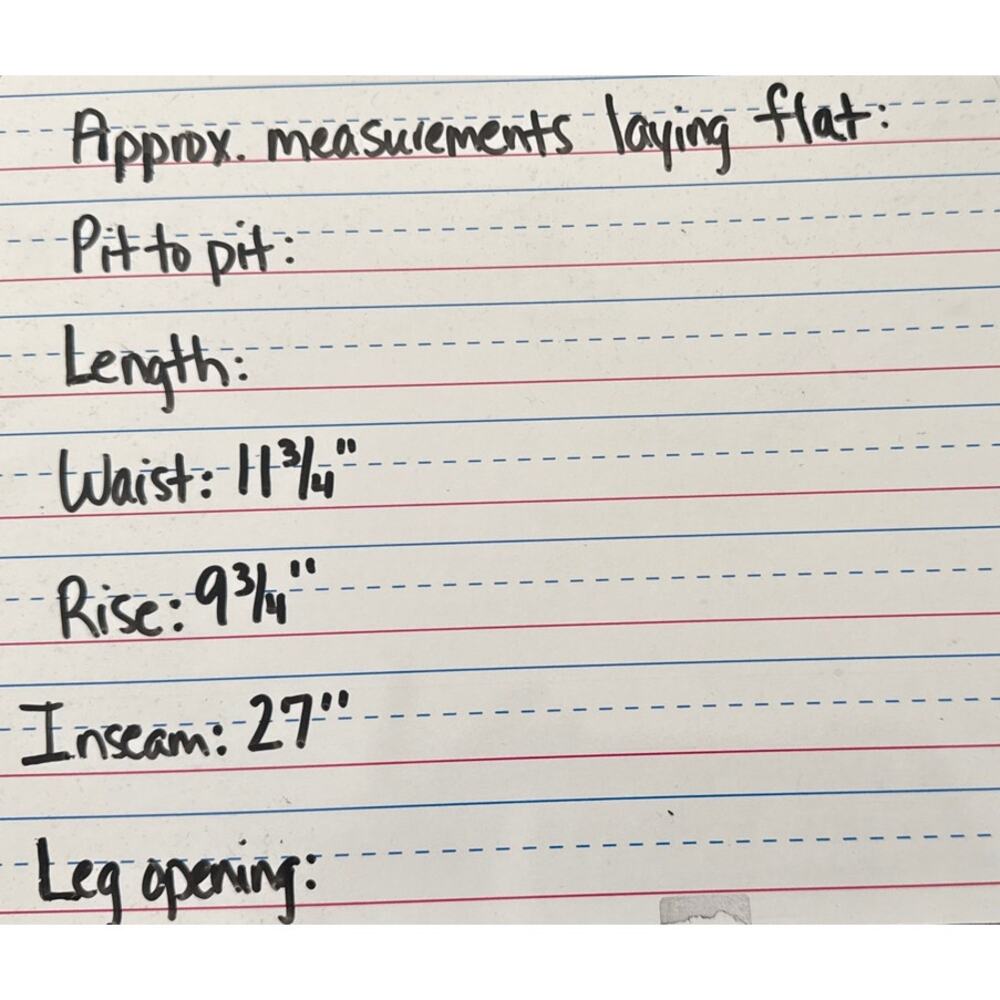 Approx. measurements laying flat:
Pit to pit:
Length:
Waist: 11 3/4"
Rise: 9 3/4"
Inseam: 27"
Leg opening: